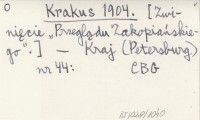 O
Krakus 1904. [Zwi-
nięcie „Przeglądu Zakopiańskie-
go".] — Kraj (Petersburg)
nr 44: CBG